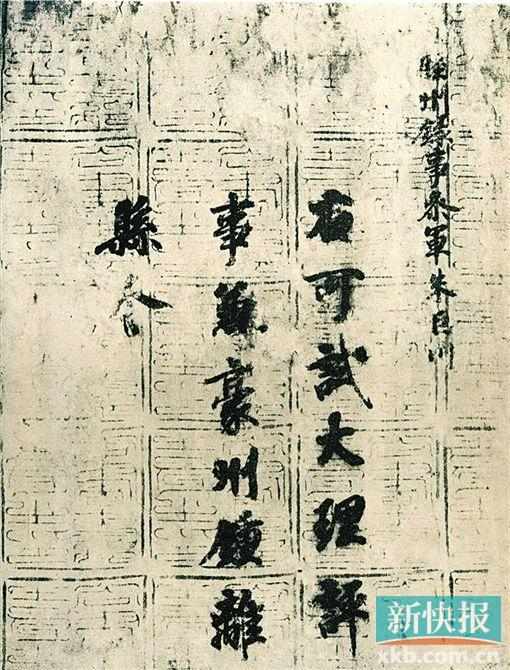 睦州錄事參軍朱巨川
右可試大理評
事兼豪州鍾離
縣令
新快报
xkb.com.cn